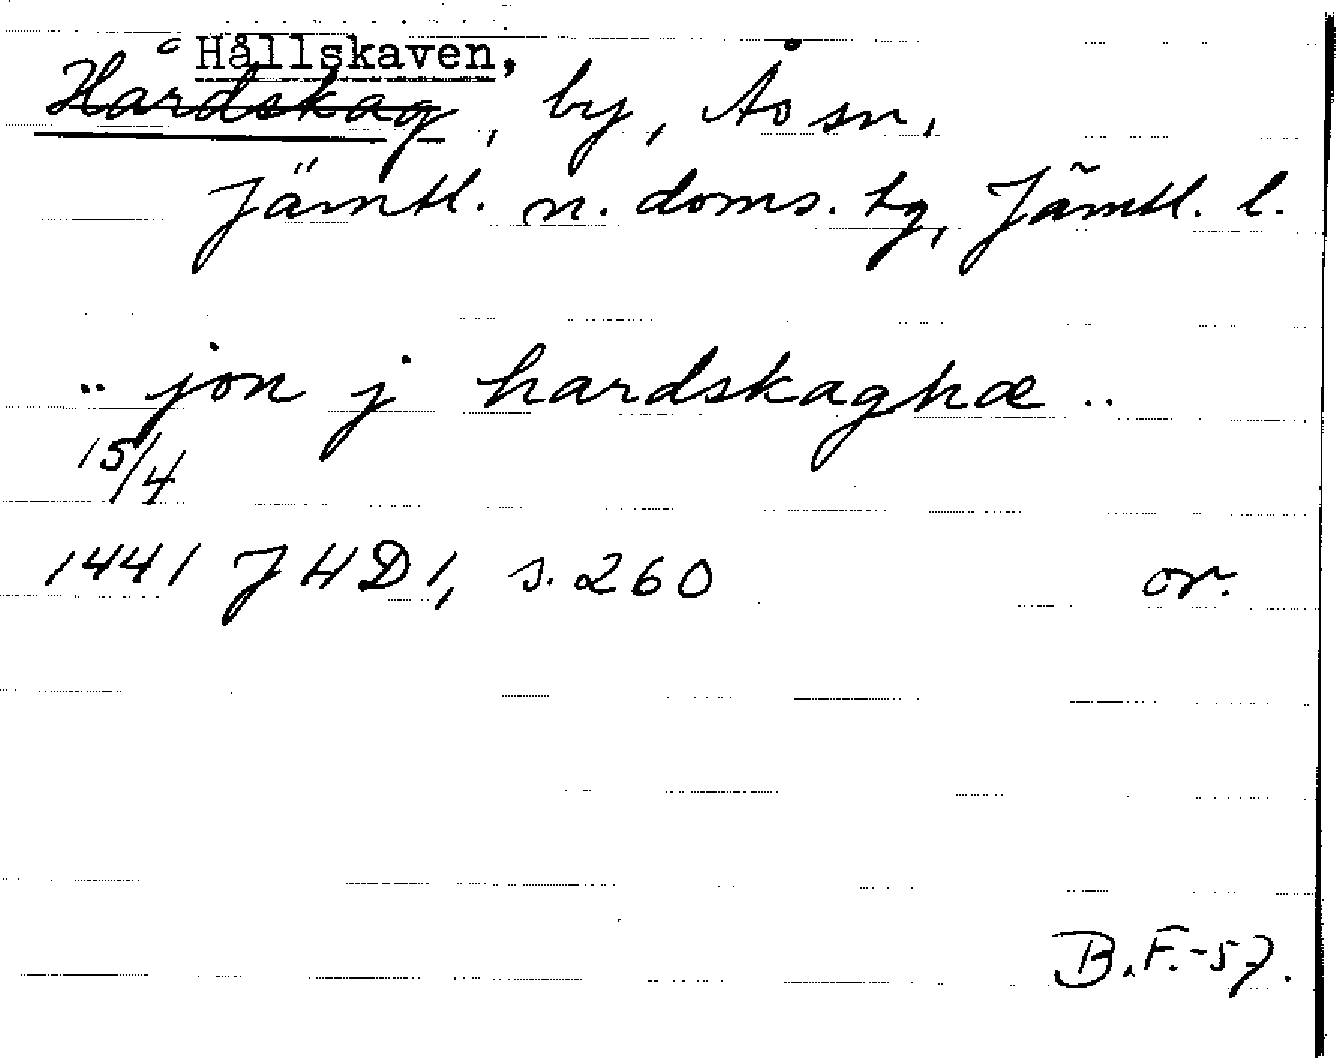 Hållskaven,
Hardskag, by, Ås sn,
Jämtl. n. doms. hg, Jämtl. l.
.. jon j hardskaghæ ..
15/4
1441 JHD 1, s. 260 or.
B.F.-57.